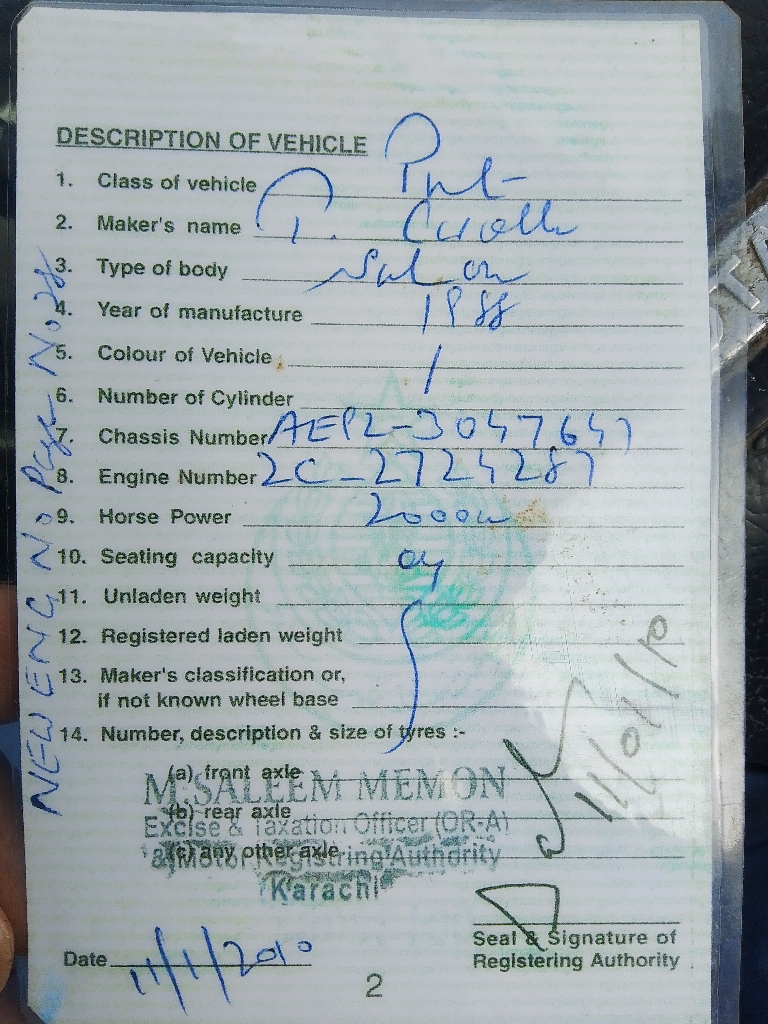 DESCRIPTION OF VEHICLE
1. Class of vehicle Pvt
2. Maker's name T. Corolla
3. Type of body Saloon
4. Year of manufacture 1988
5. Colour of Vehicle
6. Number of Cylinder
7. Chassis Number
8. Engine Number 2C-2724287
9. Horse Power 2000cc
10. Seating capacity 04
11. Unladen weight
12. Registered laden weight
13. Maker's classification or,
if not known wheel base
14. Number, description & size of tyres :-
(a) front axle
M. SALEEM MEMON
(b) rear axle
Excise & Taxation Officer (OR-A)
(c) any other axle
& Motor Registring Authority
Karachi
11/01/10
Seal & Signature of
Registering Authority
Date 11/1/2010
2
NEW ENG NO Page No 28